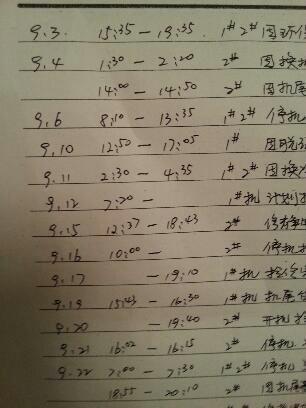 9.3. 15:35 — 19:35. 1# 2# 因环保
9.4 1:30 — 2:20 2# 因换
14:00 — 14:50 2# 因机尾
9.6 8:10 — 13:35 1# 2# 停机
9.10 12:50 — 17:05 1# 因脱
9.11 2:30 — 4:35 1# 2# 因换
9.12 7:20 — 1#机 计划
9.15 12:37 — 18:43 2#
9.16 10:00 — 2# 停机
9.17 — 19:10 1#机
9.19 15:43 — 16:30 1#机 机尾
9.20 — 19:40 2# 开机
9.21 16:02 — 16:15 2# 停机
9.22 7:00 — 7:30 1# 2# 停机
18:55 — 20:10 2# 因机尾